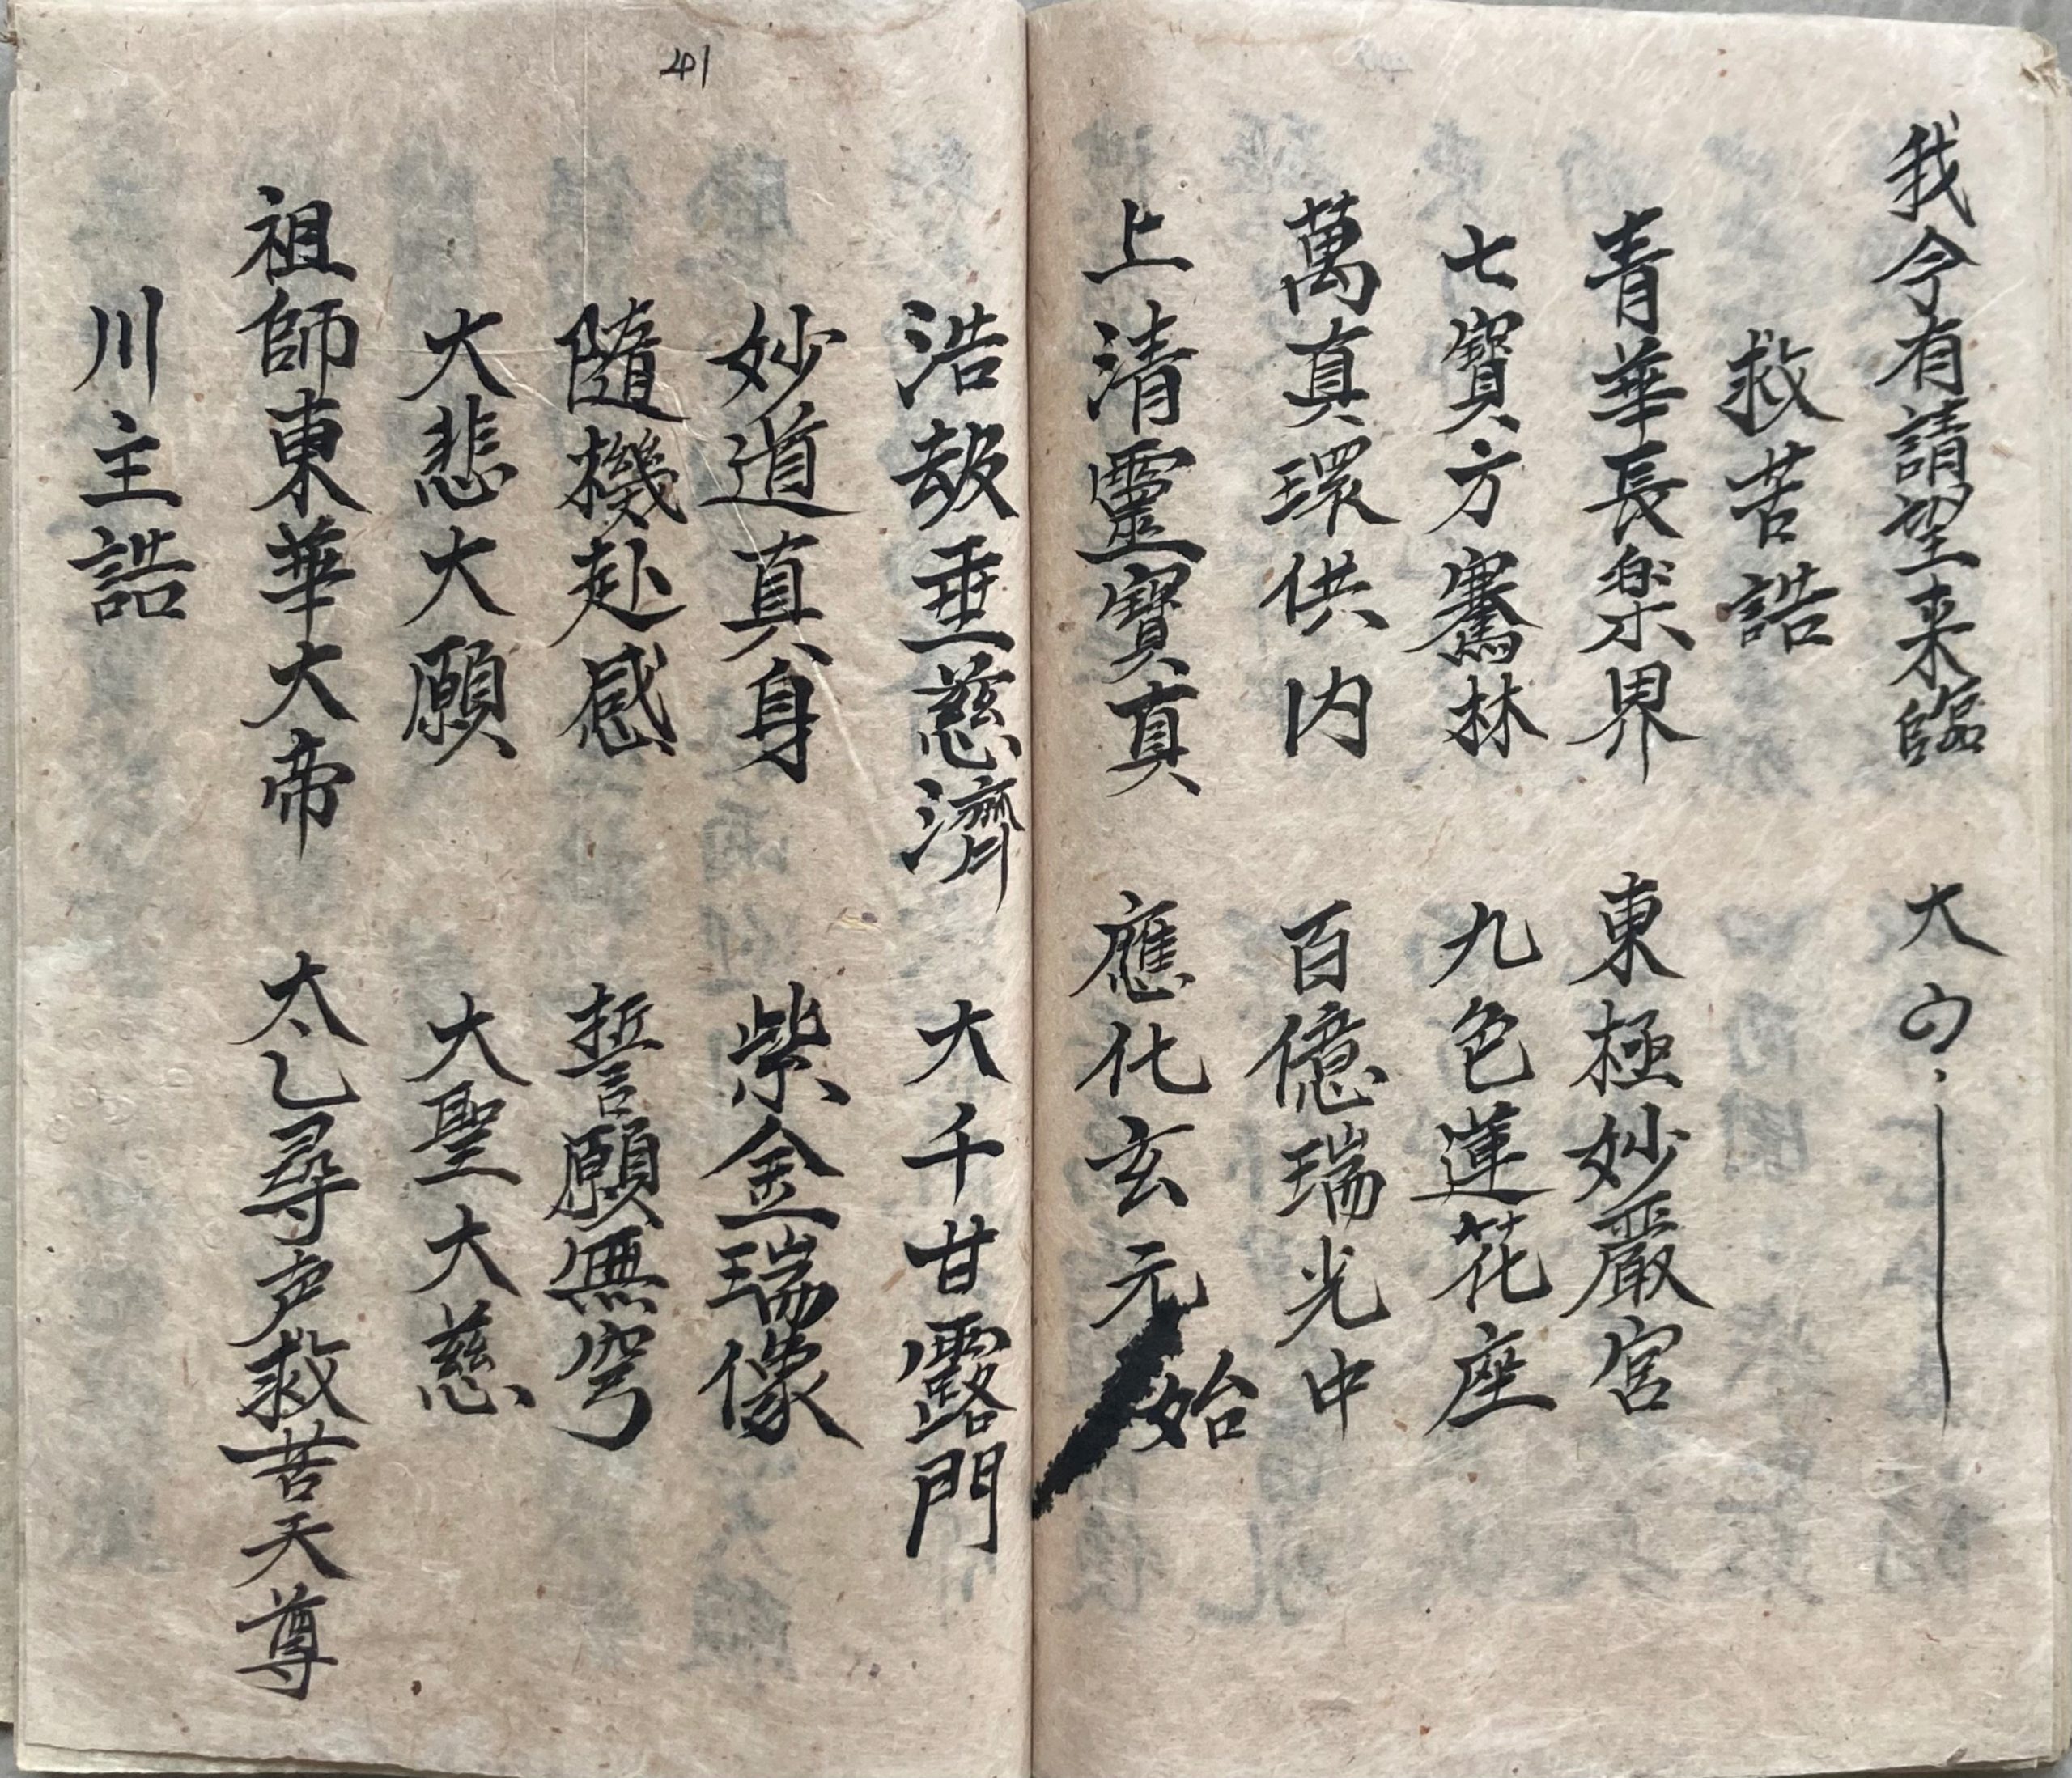 我今有請望来臨　大
救苦誥
青華長樂界　東極妙嚴宮
七寶方騫林　九色蓮花座
萬真環供内　百億瑞光中
上清靈寶真　應化玄元始
41
浩劫垂慈濟　大千甘露門
妙道真身　紫金瑞像
隨機赴感　誓願無穹
大悲大願　大聖大慈
祖師東華大帝　太乙尋声救苦天尊
川主誥